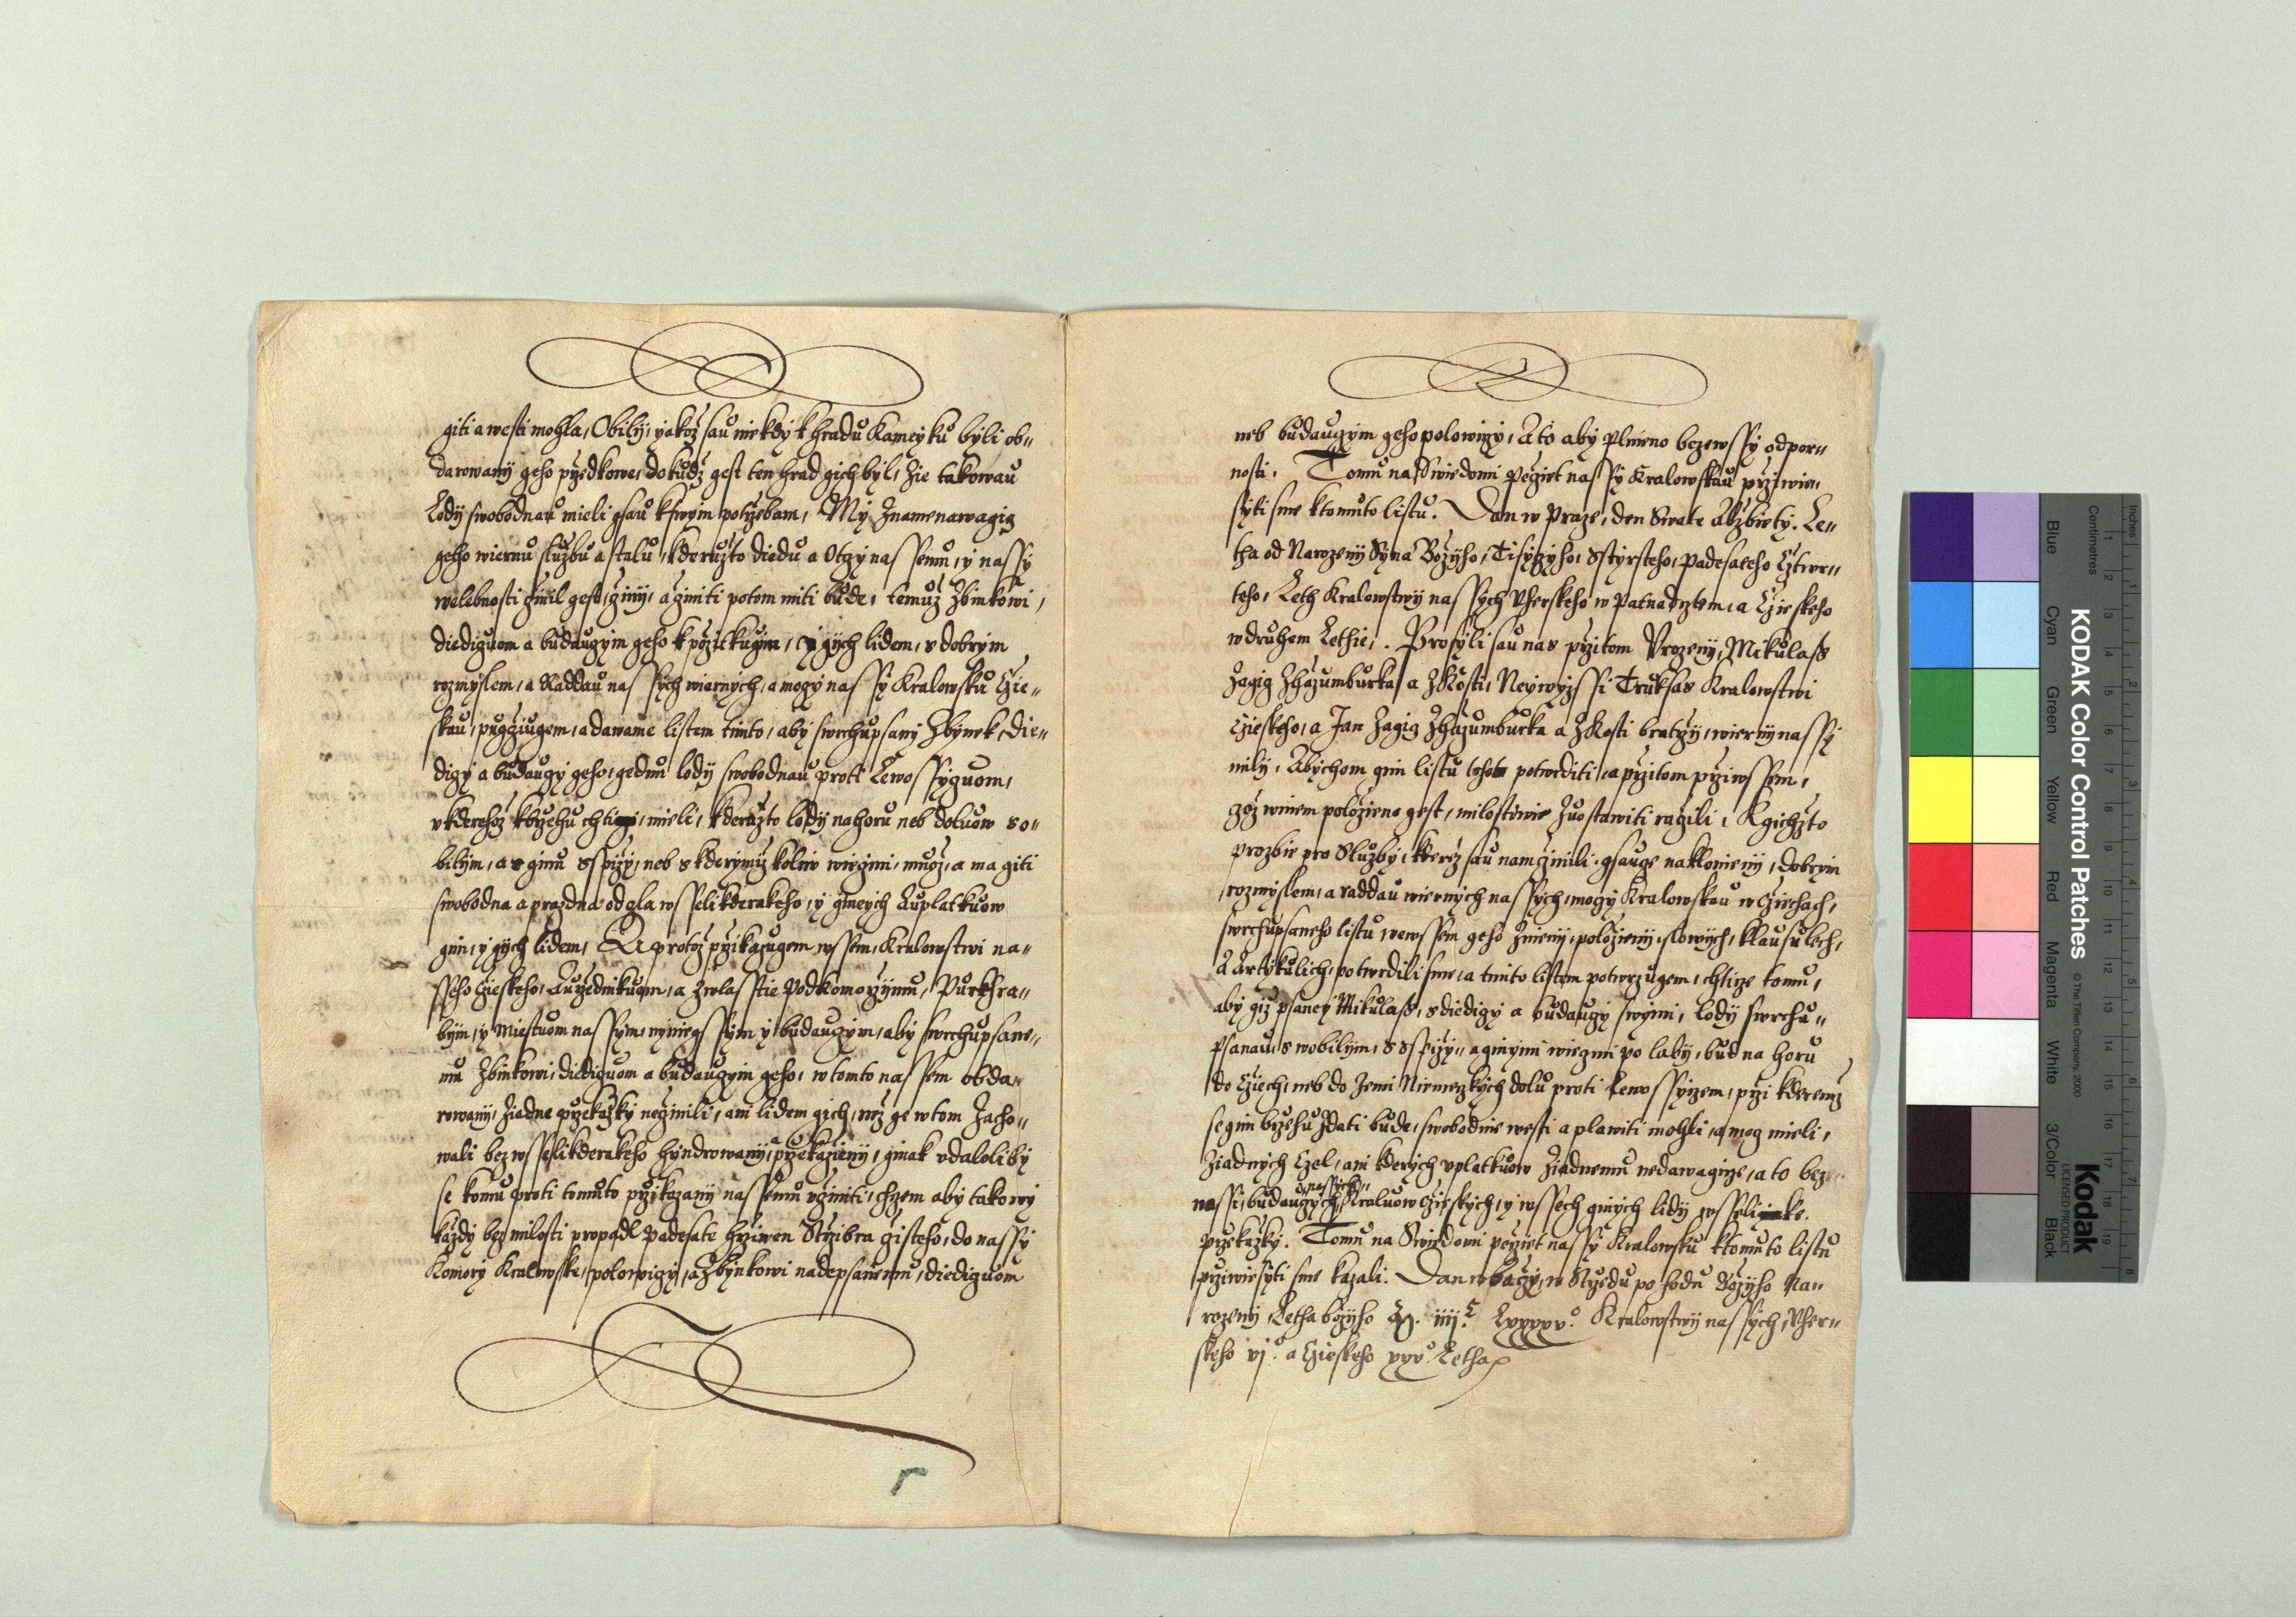 giti a westi mohla, Obily, yakoz sau niekdy k hradu Kameyku byli ob„
darowany geho przedkowe, dokudz gest ten hrad gich byl, Zie takowau
Lody swobodnau mieli gsau k swym potrzebam, My Znamenawagicz
geho wiernu sluzbu a stalu, kderuzto diedu a Otczy nassemu, y nassy
welebnosti czinil gest, cziny, a cziniti potom miti bude, temuz Zbinkowi,
diediczuom a budauczym geho k pozitkuom, y gych lidem, s dobrym
rozmyslem, a Raddau nassych wiernych, a moczy nassy Kralowsku Czie„
skau, puozciugem, a dawame listem timto, aby swrchupsany Zbynek, die„
diczy a budauczy geho, gednu lody swobodnau proti Lewossyczuom,
v kderehoz kbrzehu chticz, mieli, kderuzto lody nahoru neb doluow s o„
bilym, a s ginu sspizy, neb s kderymiz koliw wieczmi, muoz, a ma giti
swobodna a prazdna od cla wsselikderakeho, y gineych Auplatkuow
gim, y gych lidem, A protoz przikazugem wssem, Kralowstwi na„
sseho Czieskeho, Aurzednikuom, a zwlasstie Podkomorzymu, Purkhra„
bym, y Miestuom nassym, nyniegssym y budauczym, aby swrchupsane„
mu Zbinkowi, diediczuom a budauczym geho, w tomto nassem obda„
rowany, Ziadne przekazky neczinili, ani lidem gich, nez ge w tom Zacho„
wali bez wsselikderakeho hyndrowany, a przekazieny, ginak vdaloliby
se komu proti tomuto przikazany nassemu vcziniti, chczem aby takowy
kazdy bez milosti propadl padesate hrziwen Strzibra czisteho, do nassy
Komory Kralowske, polowiczy, a Zbynkowi nadepsanemu, diediczuom
neb budauczym geho polowiczy, A to aby plnieno beze wssy odpor„
nosti. Tomu na Swiedomi Peczet nassy Kralowskau prziwie„
syti sme k tomuto listu. Dan w Praze, den Swate Alzbiety. Le„
tha od Narozeny Syna Bozyho, Tisyczyho, Sstyrsteho, Padesateho Cztwr„
teho, Leth Kralowstwy nassych Vherskeho w Patnadcztem, a Czieskeho
w druhem Lethie, . Prosyli sau nas przitom Vrozeny, Mikulass
Zagicz Zhazumburka a Z Kosti, Neywyzssi Truksas Kralowstwi
Czieskeho, a Jan Zagicz Zhazumburka a Z Kosti bratrzy, wierny nassy
mily, Abychom gim listu tohoto potwrditi, a przitom przi wssem,
czoz w niem polozieno gest, milostiwie Zuostawiti raczili, K gichzto
prozbie pro Sluzby, kterez sau nam czinili, gsauce naklonieny, dobrym
rozmyslem, a raddau wiernych nassych, moczy Kralowskau w Cziechach,
swrchupsaneho listu we wssem geho Znieny, polozieny, slowych, klausulech,
A Artykulich, potwrdili sme, a timto listem potwrzugem, chticze tomu,
aby giz psaney Mikulass, s diediczy a budauczy swymi, lody swrchu„
psanau, s wobilym, s sspizy„ a ginymi wieczmi po laby, bud na horu
do Cziech, neb do Zemi Niemeczkych dolu proti Lewossyczem, przi kderemz
se gim brzehu Zdati bude, swobodnie westi a plawiti mohli, a mocz mieli,
Ziadnych Czel, ani kderych vplatkuow Ziadnemu nedawagicze, a to bez
nassi, budauczych, nassych Kraluow Czieskych, y wssech ginych lidy wsselike.
przekazky. Tomu na Swiedomi peczet nassy Kralowsku k tomuto listu
przwiesyti sme kazali. Dan w Budy, w Strzedu po hodu Bozyho Na„
rozeny, Letha bozyho M. iiij.C Lxxxxv.o Kralowstwy nassych, Vher„
skeho vj.o a Czieskeho xxv.o Letha